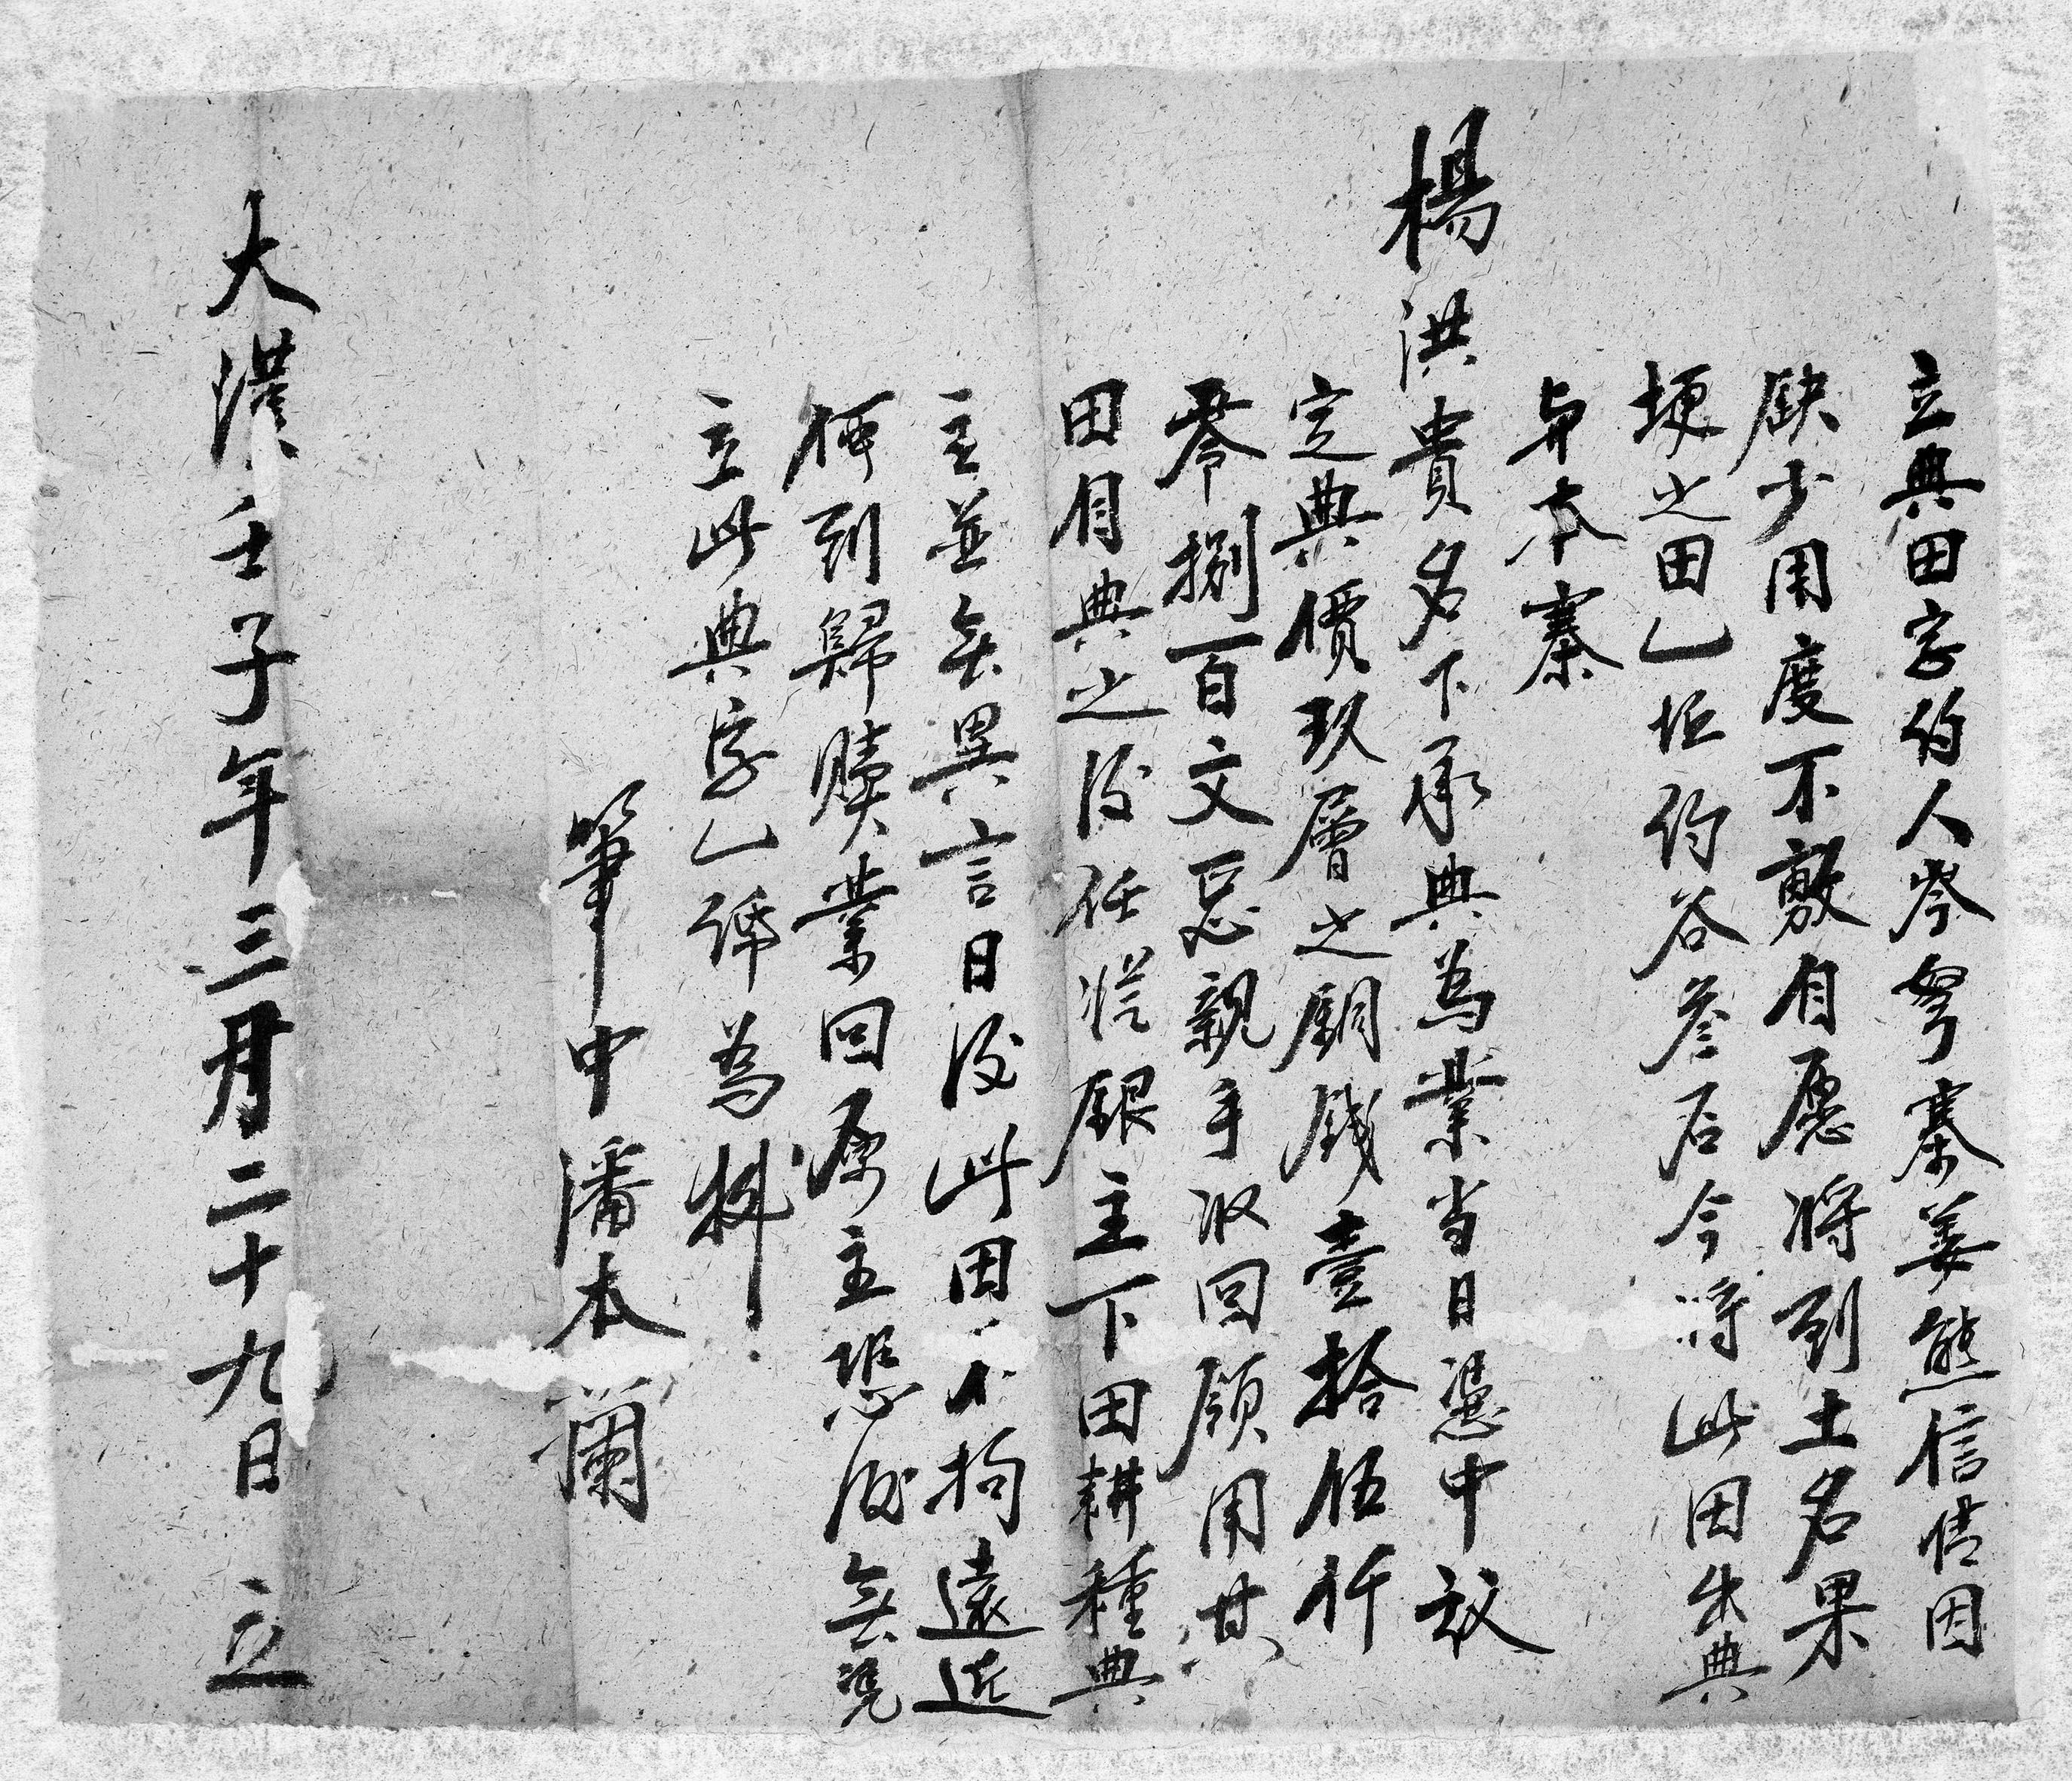 立典田字约人岑弩寨姜熊信情因
缺少用度不敷自愿将到土名果
埂之田乙坵约谷叁石今将此田出典
与本寨
楊洪貴名下承典為業当日憑中议
定典價玖層之銅錢壹拾伍仟
零捌百文忌親手收回領用其
田自典之後任從銀主下田耕種典
主並無異言日後此田不拘遠近
價到歸贖業回原主恐後無凭
立此典字乙帋為㨿
筆中潘本蘭
大漢壬子年三月二十九日 立